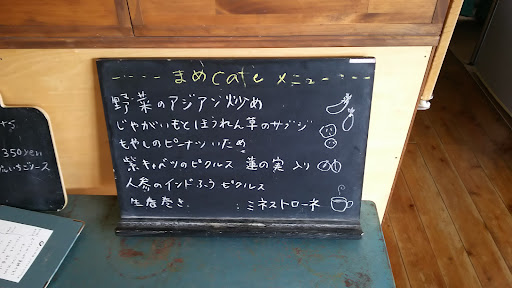 まめcafe メニュー
野菜のアジアン炒め
じゃがいもとほうれん草のサブジ
もやしのピーナツいため
紫キャベツのピクルス 蓮の実入り
人参のインドふうピクルス
生春巻き :ミネストローネ
350yen
いちごソース